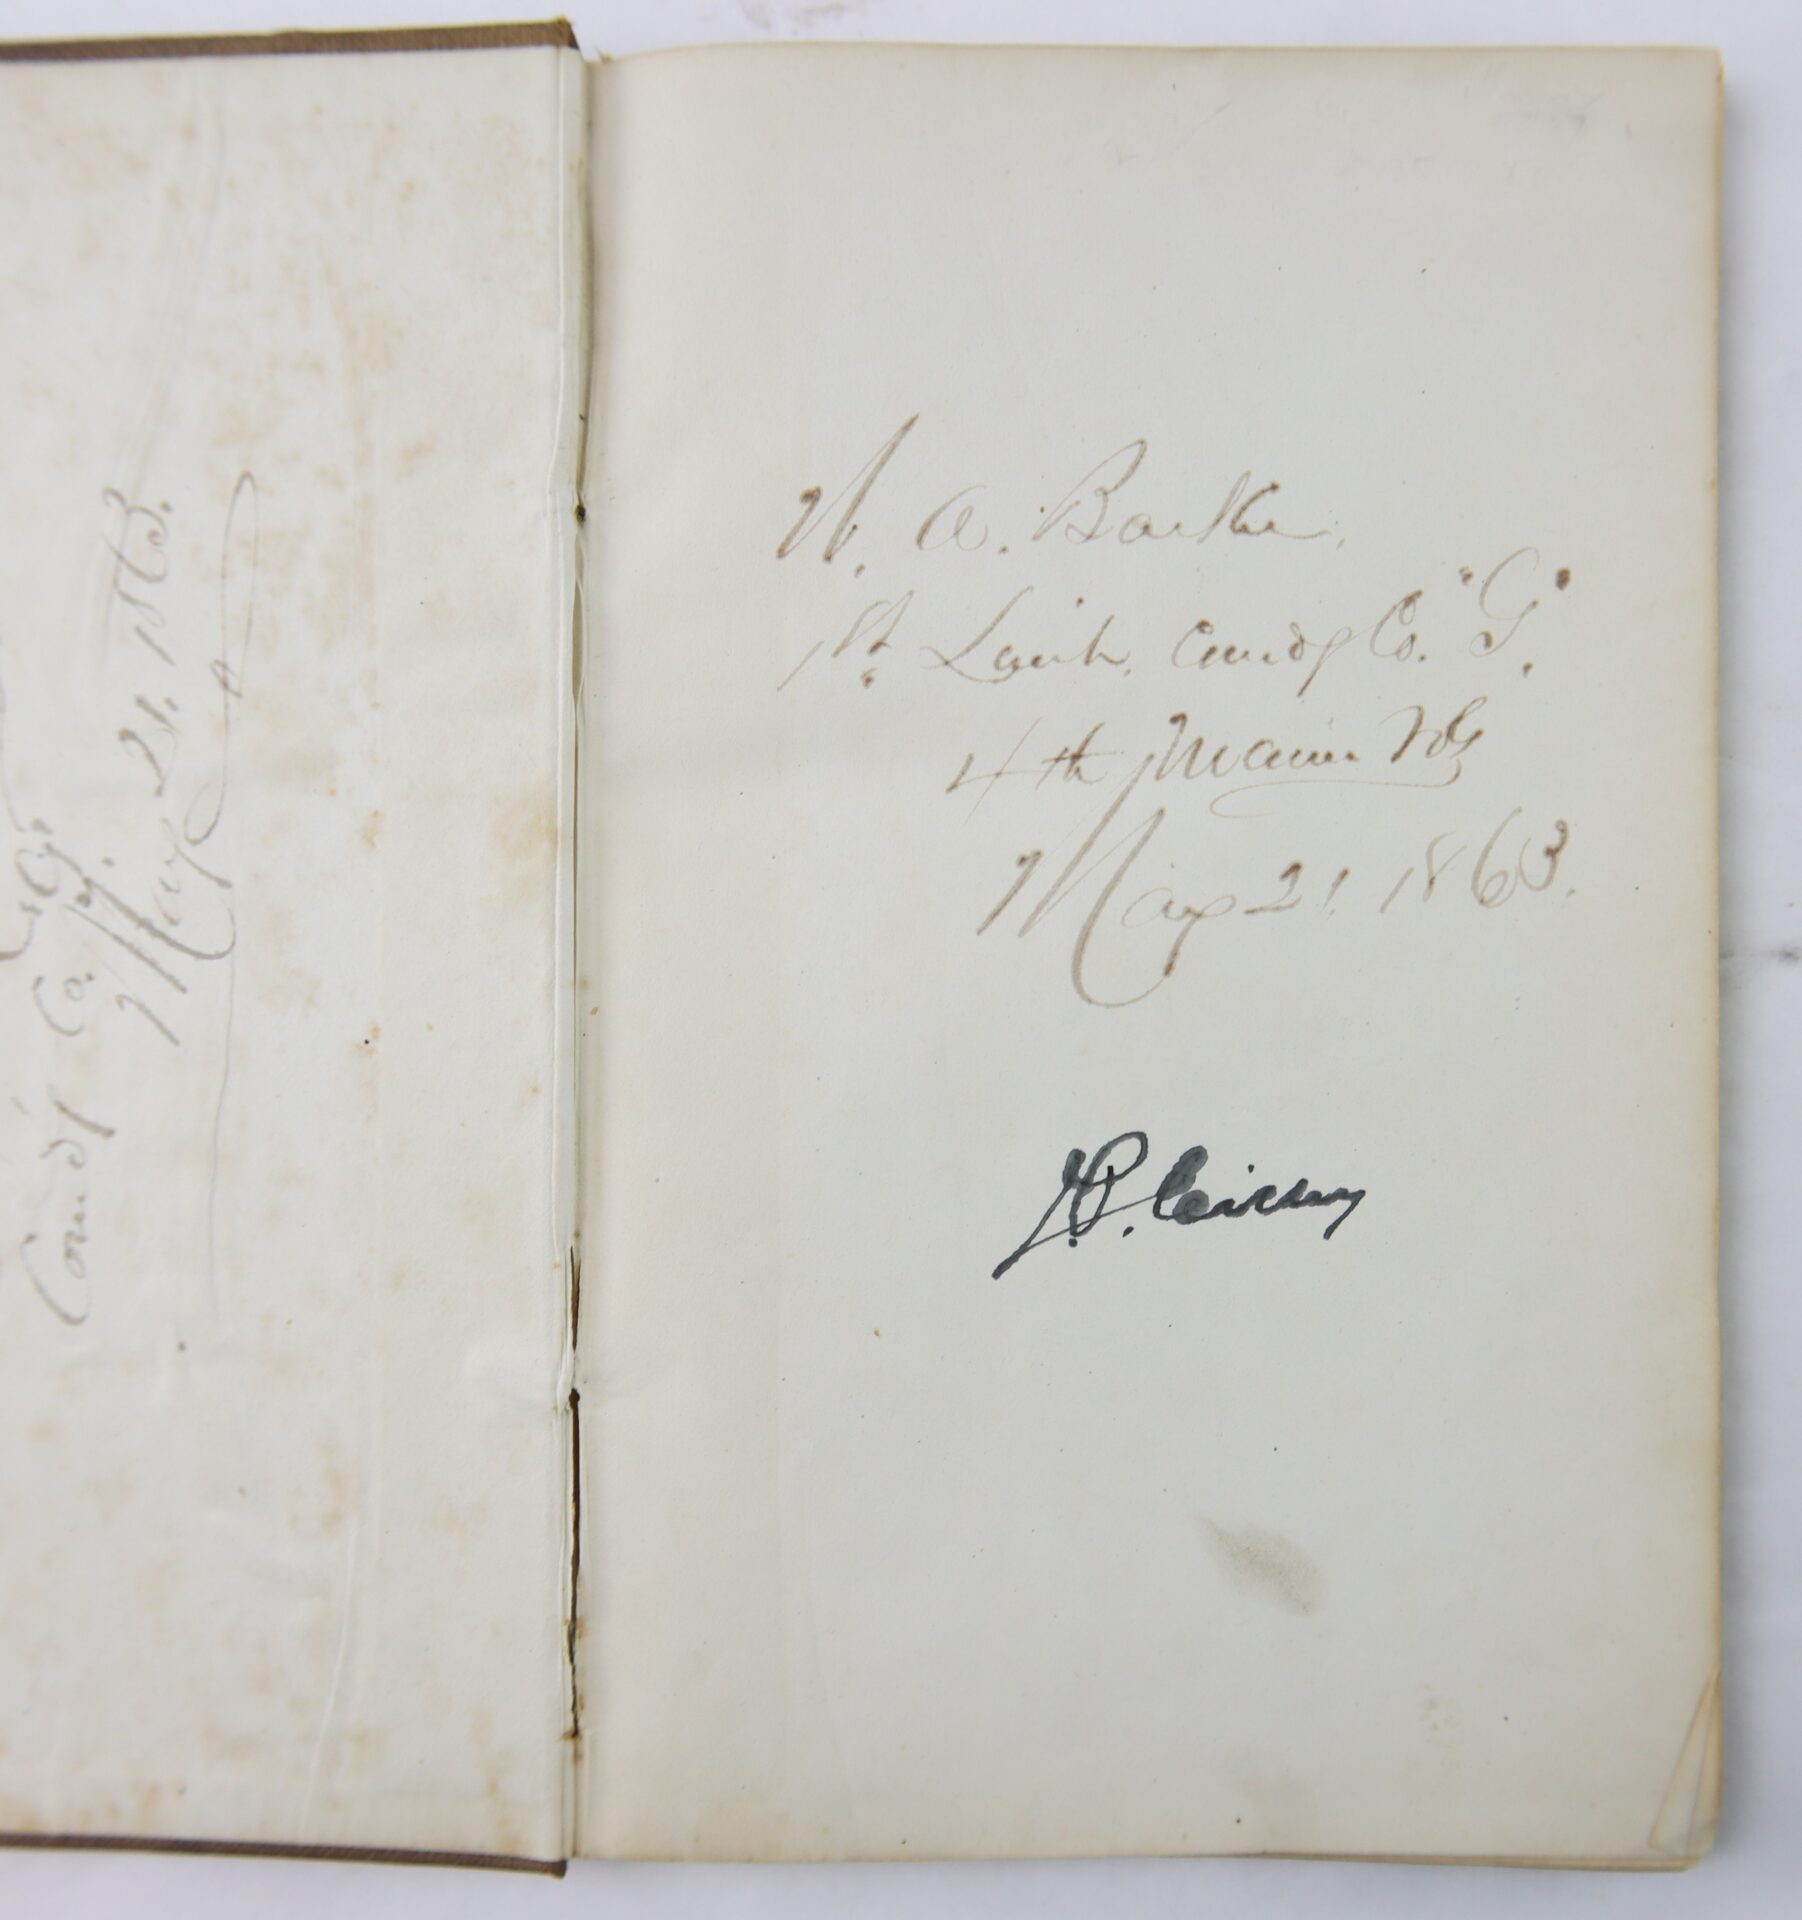 Comdg Co. "G".
May 21. 1863.
W. A. Barker.
1st. Lieut. Comdg Co. "G".
4th Maine Vols
May 21. 1863.
J.P.